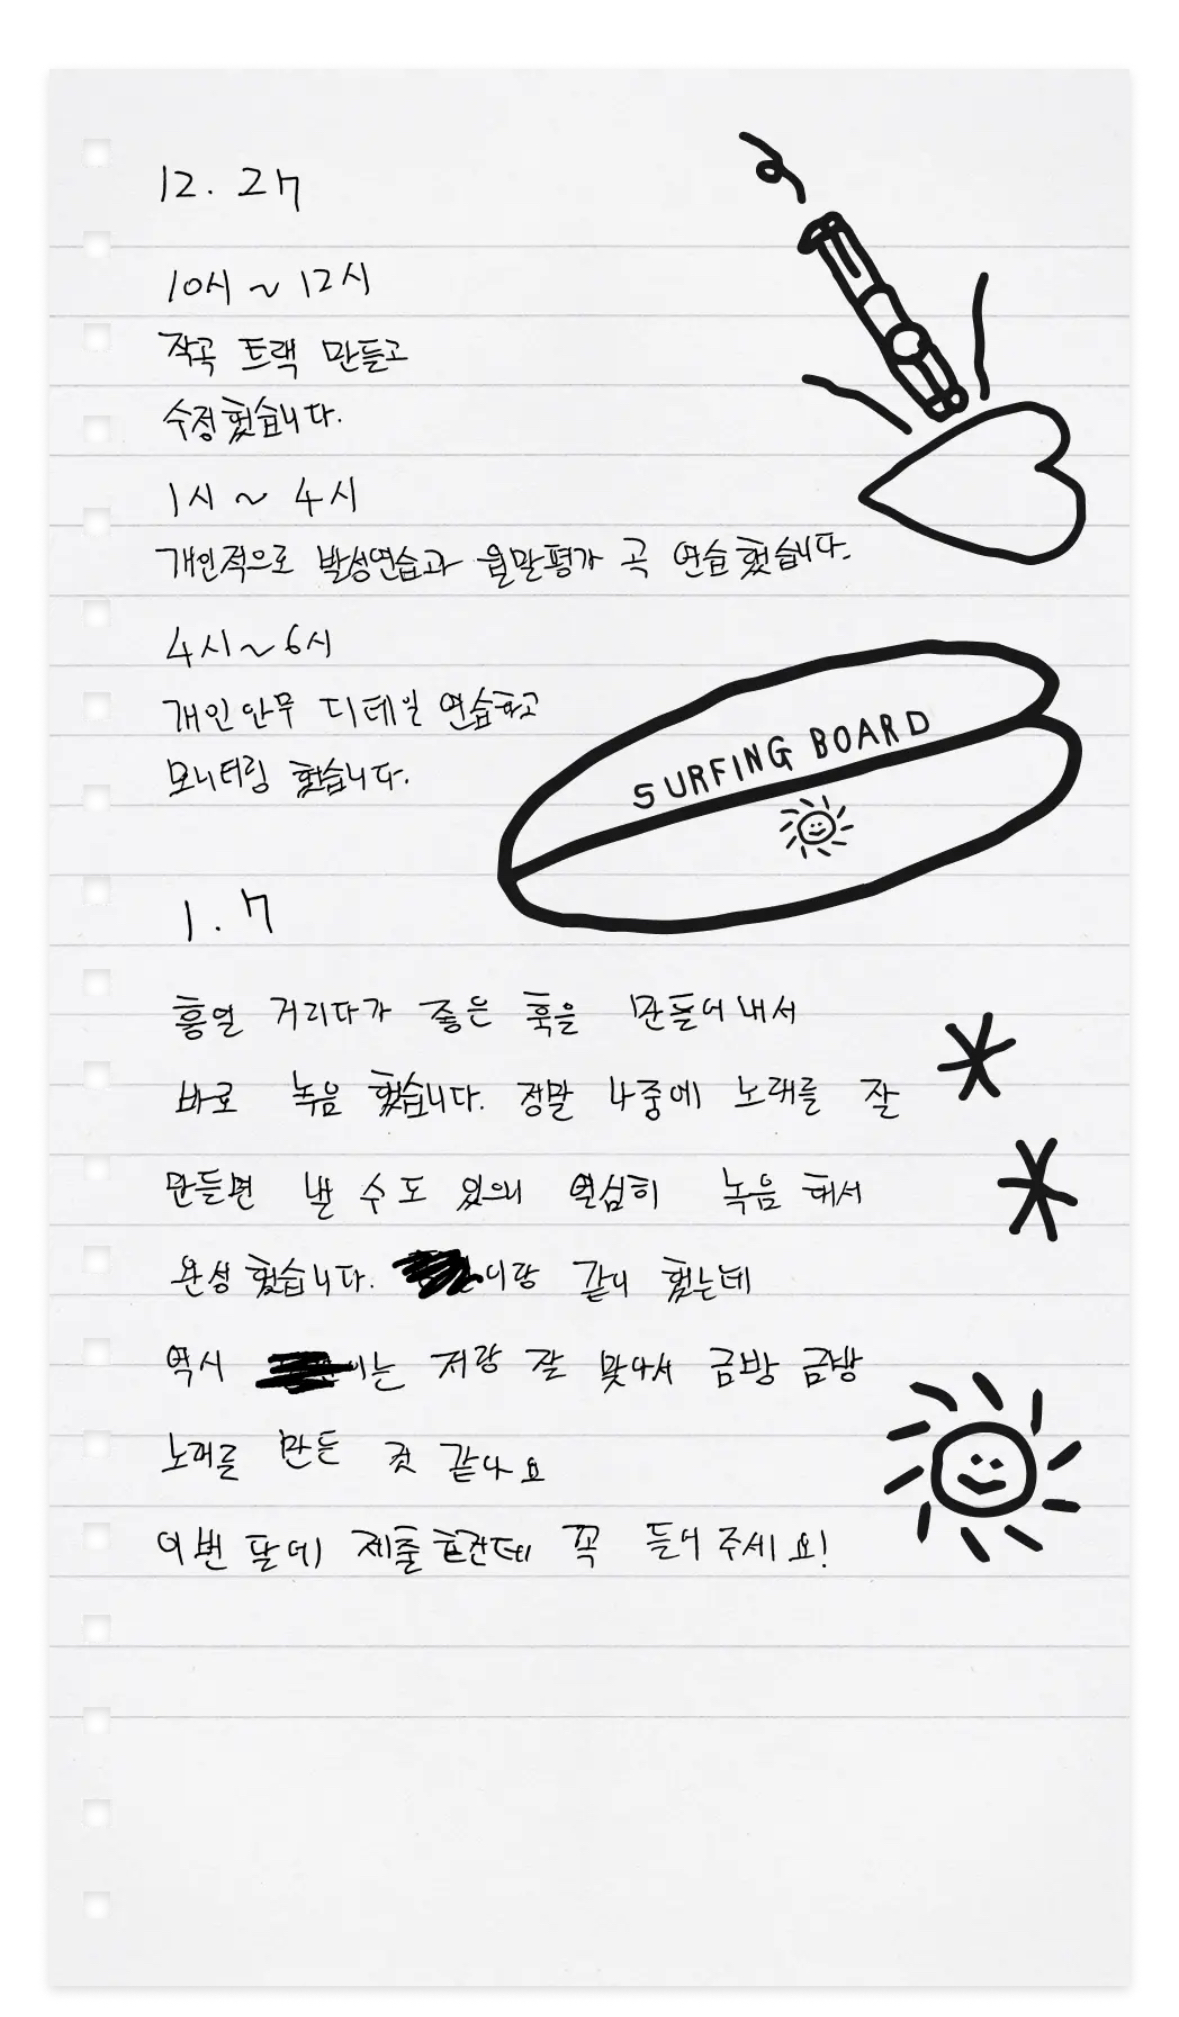 12. 27
10시 ~ 12시
작곡 트랙 만들고
수정 했습니다.
1시 ~ 4시
개인적으로 발성연습과 월말평가 곡 연습 했습니다.
4시~6시
개인 안무 디테일 연습하고
모니터링 했습니다.
SURFING BOARD
1. 7
흥얼 거리다가 좋은 훅을 만들어내서
바로 녹음 했습니다. 정말 나중에 노래를 잘
만들면 낼 수도 있으니 열심히 녹음 해서
완성 했습니다. 이랑 같이 했는데
역시 이는 저랑 잘 맞아서 금방 금방
노래를 만든 것 같아요
이번 달에 제출 할건데 꼭 들어 주세요!